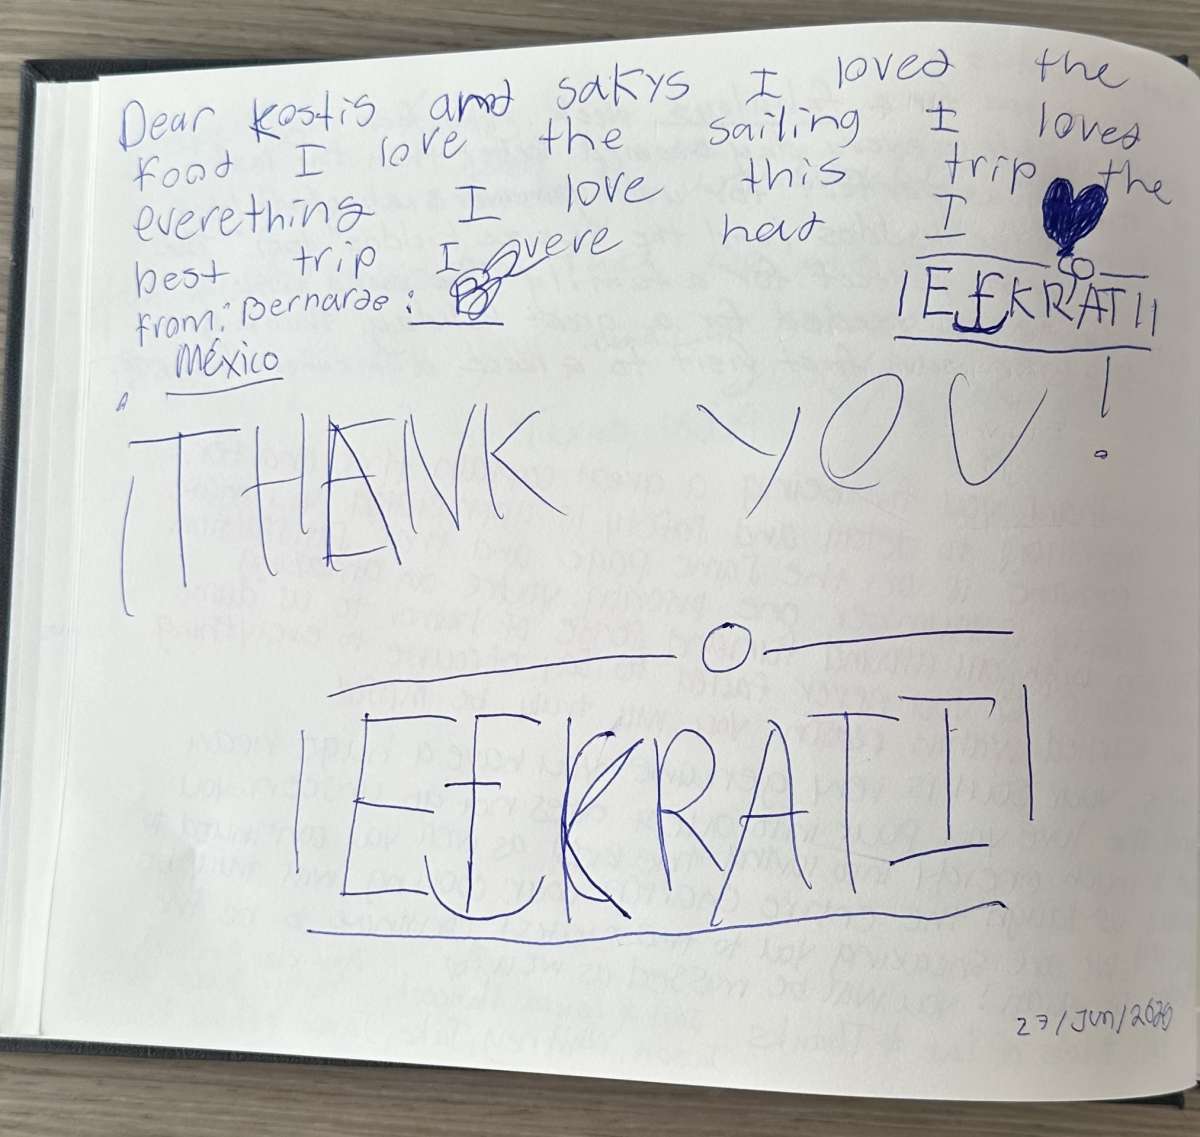 Dear kostis and sakys I loved the
food I love the sailing I loved
everething I love this trip the
best trip I overe had I
from: Bernardo:
México
EfKRATI
THANK YOU!
EfKRATI
27/Jun/2620